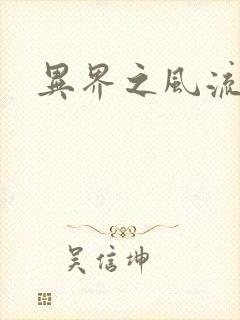 異界之風流
吳信坤